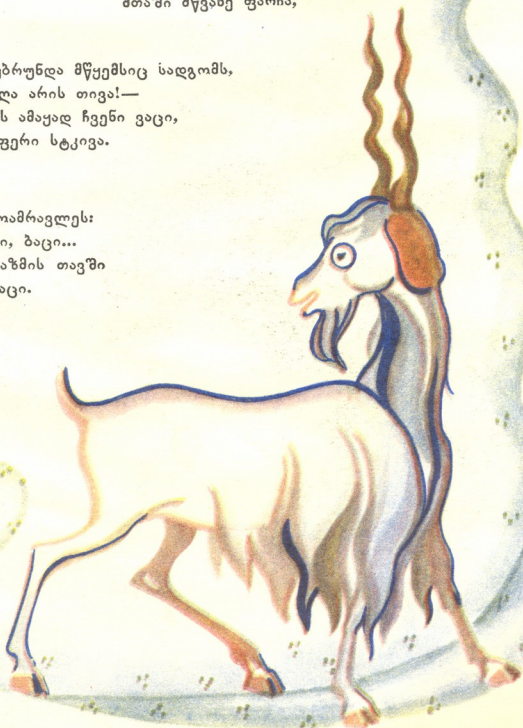 მთაში მწვანე ფარჩა,
ბრუნდა მწყემსიც სადგომს,
ლა არის თივა!—
ს ამაყად ჩვენი ვაცი,
ფერი სტკივა.
ამრავლეს:
ი, ბაცი...
აზმის თავში
აცი.